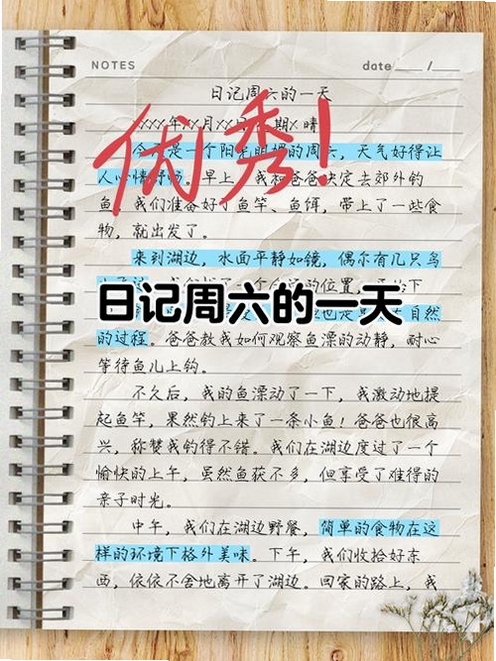 NOTES
date ___ / ___
日记周六的一天
XXX年XX月XX日 星期X 晴
优秀!
今天是一个阳光明媚的周六，天气好得让
人心情舒畅。早上，我和爸爸决定去郊外钓
鱼。我们准备好了鱼竿、鱼饵，带上了一些食
物，就出发了。
来到湖边，水面平静如镜，偶尔有几只鸟
的位置，
下
日记周六的一天
也是
自然
的过程。爸爸教我如何观察鱼漂的动静，耐心
等待鱼儿上钩。
不久后，我的鱼漂动了一下，我激动地提
起鱼竿，果然钓上来了一条小鱼！爸爸也很高
兴，称赞我钓得不错。我们在湖边度过了一个
愉快的上午，虽然鱼获不多，但享受了难得的
亲子时光。
中午，我们在湖边野餐，简单的食物在这
样的环境下格外美味。下午，我们收拾好东
西，依依不舍地离开了湖边。回家的路上，我